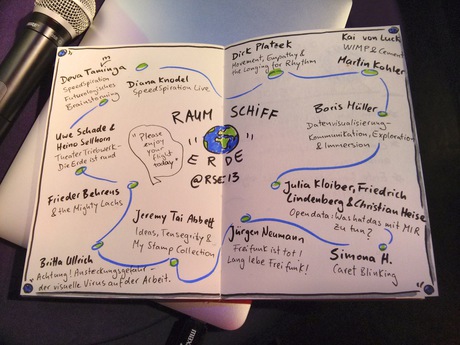 Deva Taminga
SpeedSpiration
Futurologisches
Brainstorming
Diana Knodel
SpeedSpiration Live
Uwe Schade &
Heino Sellhorn
Theater Triebwerk –
Die Erde ist rund
Frieder Behrens
& the Mighty Lachs
Britta Ullrich
Achtung! Ansteckungsgefahr –
der visuelle Virus auf der Arbeit.
Jeremy Tai Abbett
Ideas, Tensegrity &
My Stamp Collection
"Please
enjoy
your
flight
today"
RAUM SCHIFF
"ERDE"
@RSE13
Dirk Platzek
Movement, Empathy &
the Longing for Rhythm
Kai von Luck
WIMP & Cement
Martin Kohler
Boris Müller
Datenvisualisierung–
Kommunikation, Exploration
& Immersion
Julia Kloiber, Friedrich
Lindenberg & Christian Heise
Opendata: Was hat das mit MIR
zu tun?
Jürgen Neumann
Freifunk ist tot!
Lang lebe Freifunk!
Simona H.
Caret Blinking